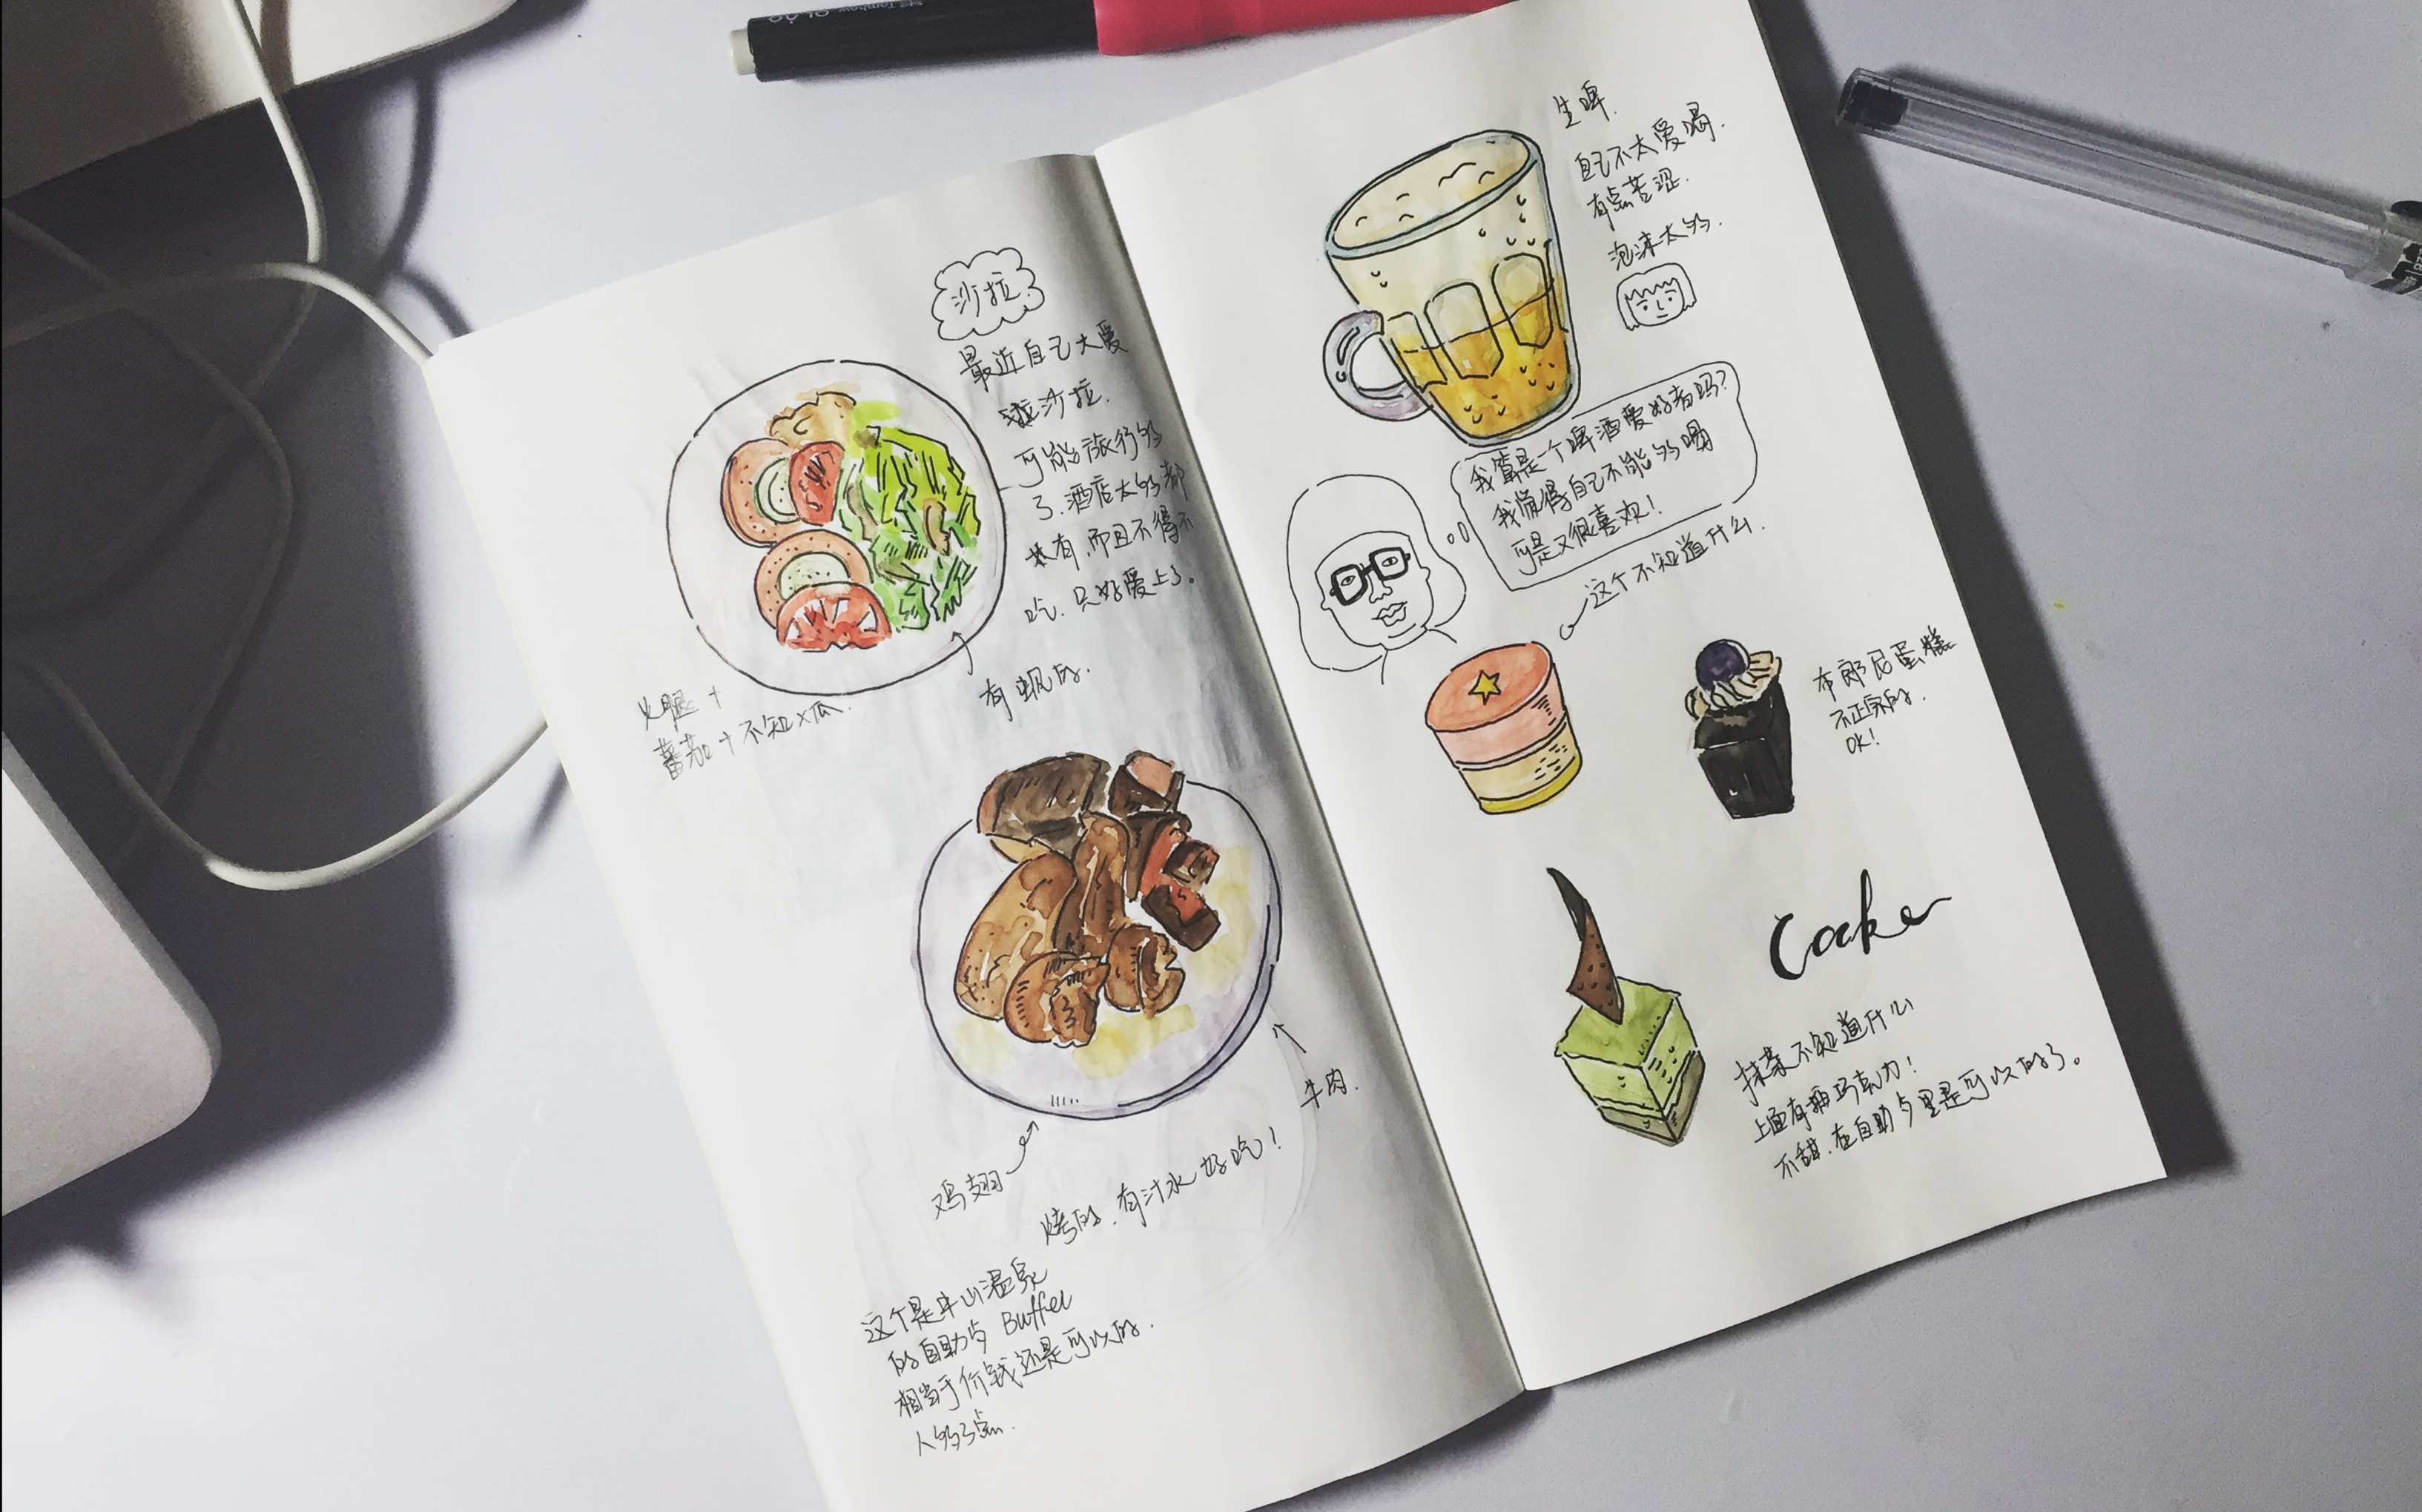 沙拉
最近自己太爱
沙拉.
可能旅行多
了.酒店太多都
有,而且不得不
吃.只好爱上了。
有虾的.
火腿+
蕃茄+不知×瓜.
牛肉.
鸡翅
烤的.有汁水好吃!
这个是半山温泉
的自助与 Buffet
相当于价钱还是可以的.
人多了点.
生啤.
自己不太爱喝.
有点苦涩.
泡沫太多.
我算是一个啤酒爱好者吗?
我觉得自己不能多喝
可是又很喜欢!
这个不知道什么.
布郎尼蛋糕
不正宗的.
OK!
Cake
抹茶不知道什么
上面有 巧克力!
不甜.在自助与里是可以的了。
Tombow